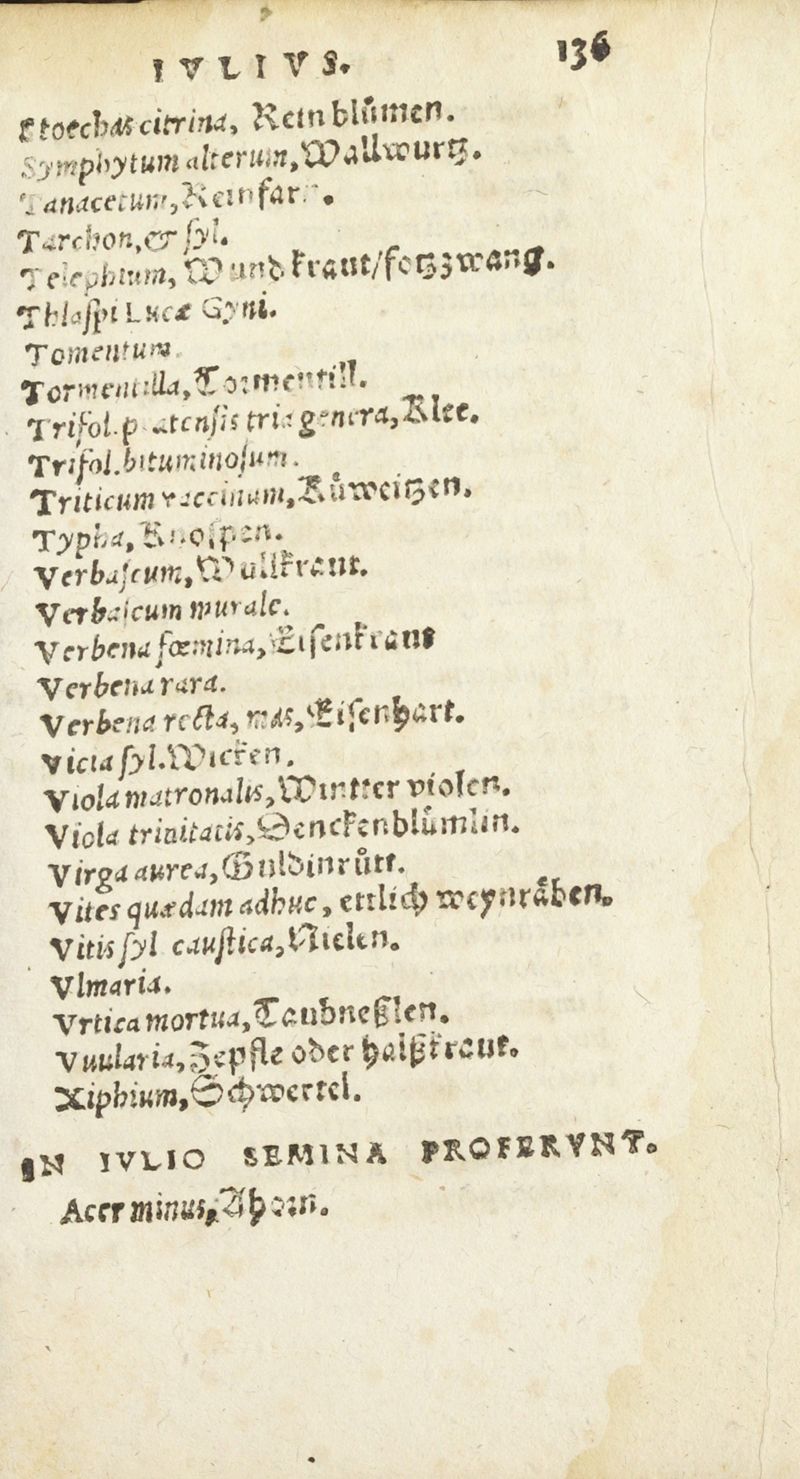 IVLIVS. 136
Stoechas citrina, Reinblůmen.
Symphytum alterum, Wallwurtz.
Tanacetum, Reinfar.
Tarchon, & syl.
Telephium, Wundkraut/fotzzwang.
Thlaspi Lucæ Gyni.
Tomentum.
Tormentilla, Tormentill.
Trifol. pratensis tria genera, Klee.
Trifol. bituminosum.
Triticum vaccinum, Kůweitzen.
Typha, Knospen.
Verbascum, Wullkraut.
Verbascum murale.
Verbena fœmina, Eisenkraut
Verbena rara.
Verbena recta, mas, Eisenhart.
Vicia syl. Wicken.
Viola matronalis, Wintter violen.
Viola trinitatis, Denckenblůmlin.
Virga aurea, Guldinrůtt.
Vites quædam adhuc, ettlich weynräben.
Vitis syl caustica, Nielen.
Vlmaria.
Vrtica mortua, Taubneßlen.
Vuularia, Zepfle oder halßkraut.
Xiphium, Schwertel.
IN IVLIO SEMINA PROFERVNT.
Acer minus, Ahorn.